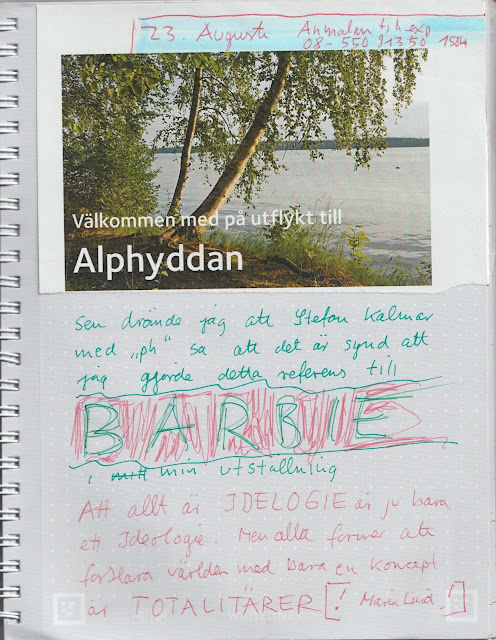 23. Augusti Anmälan till exp
08-550 913 50 1504
Välkommen med på utflykt till
Alphyddan
Sen drömde jag att Stefan Kalmar
med „ph" sa att det är synd att
jag gjorde detta referens till
BARBIE
i min utställning
Att allt är IDELOGIE är ju bara
ett Ideologie. Men alla former att
förklara världen med bara en koncept
är TOTALITÄRER [! Maria Lind!]